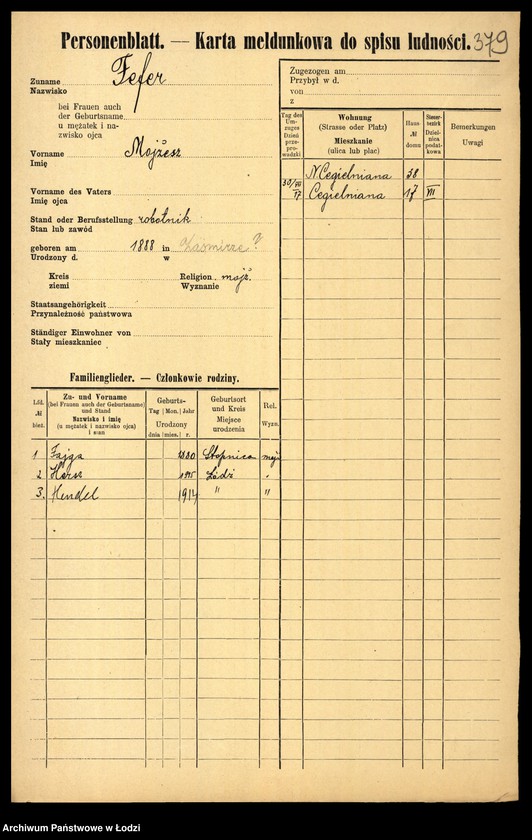 Personenblatt. — Karta meldunkowa do spisu ludności. 379
Zuname Fefer
Nazwisko
bei Frauen auch
der Geburtsname,
u mężatek i na-
zwisko ojca
Vorname Mojżesz
Imię
Vorname des Vaters
Imię ojca
Stand oder Berufsstellung robotnik
Stan lub zawód
geboren am 1888 in Kaźmirze?
Urodzony d. w
Kreis
ziemi
Religion mojż.
Wyznanie
Staatsangehörigkeit
Przynależność państwowa
Ständiger Einwohner von
Stały mieszkaniec
Zugezogen am
Przybył w d.
von
z
Tag des Um-zuges Dzień prze-prowadzki
Wohnung (Strasse oder Platz) Mieszkanie (ulica lub plac)
Haus № domu
Steuer-bezirk Dzielnica podat-kowa
Bemerkungen Uwagi
N Cegielniana 38
30/VII 17 Cegielniana 17 VII
Familienglieder. — Członkowie rodziny.
Lfd. № bież.
Zu- und Vorname (bei Frauen auch der Geburtsname) und Stand Nazwisko i imię (u mężatek i nazwisko ojca) i stan
Geburts- Tag Mon. Jahr Urodzony dnia mies. r.
Geburtsort und Kreis Miejsce urodzenia
Rel. Wyzn.
1 Fajga 1880 Stopnica mojż
2 Hersz Łódź "
3. Hendel 1914 " "
Archiwum Państwowe w Łodzi